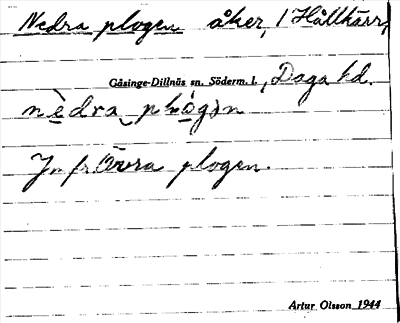 Nedra plogen åker, 1 Hållkärr,
Gåsinge-Dillnäs sn. Söderm. l., Daga hd.
nèdra plógən
Jmfr. Övra plogen.
Artur Olsson 1944